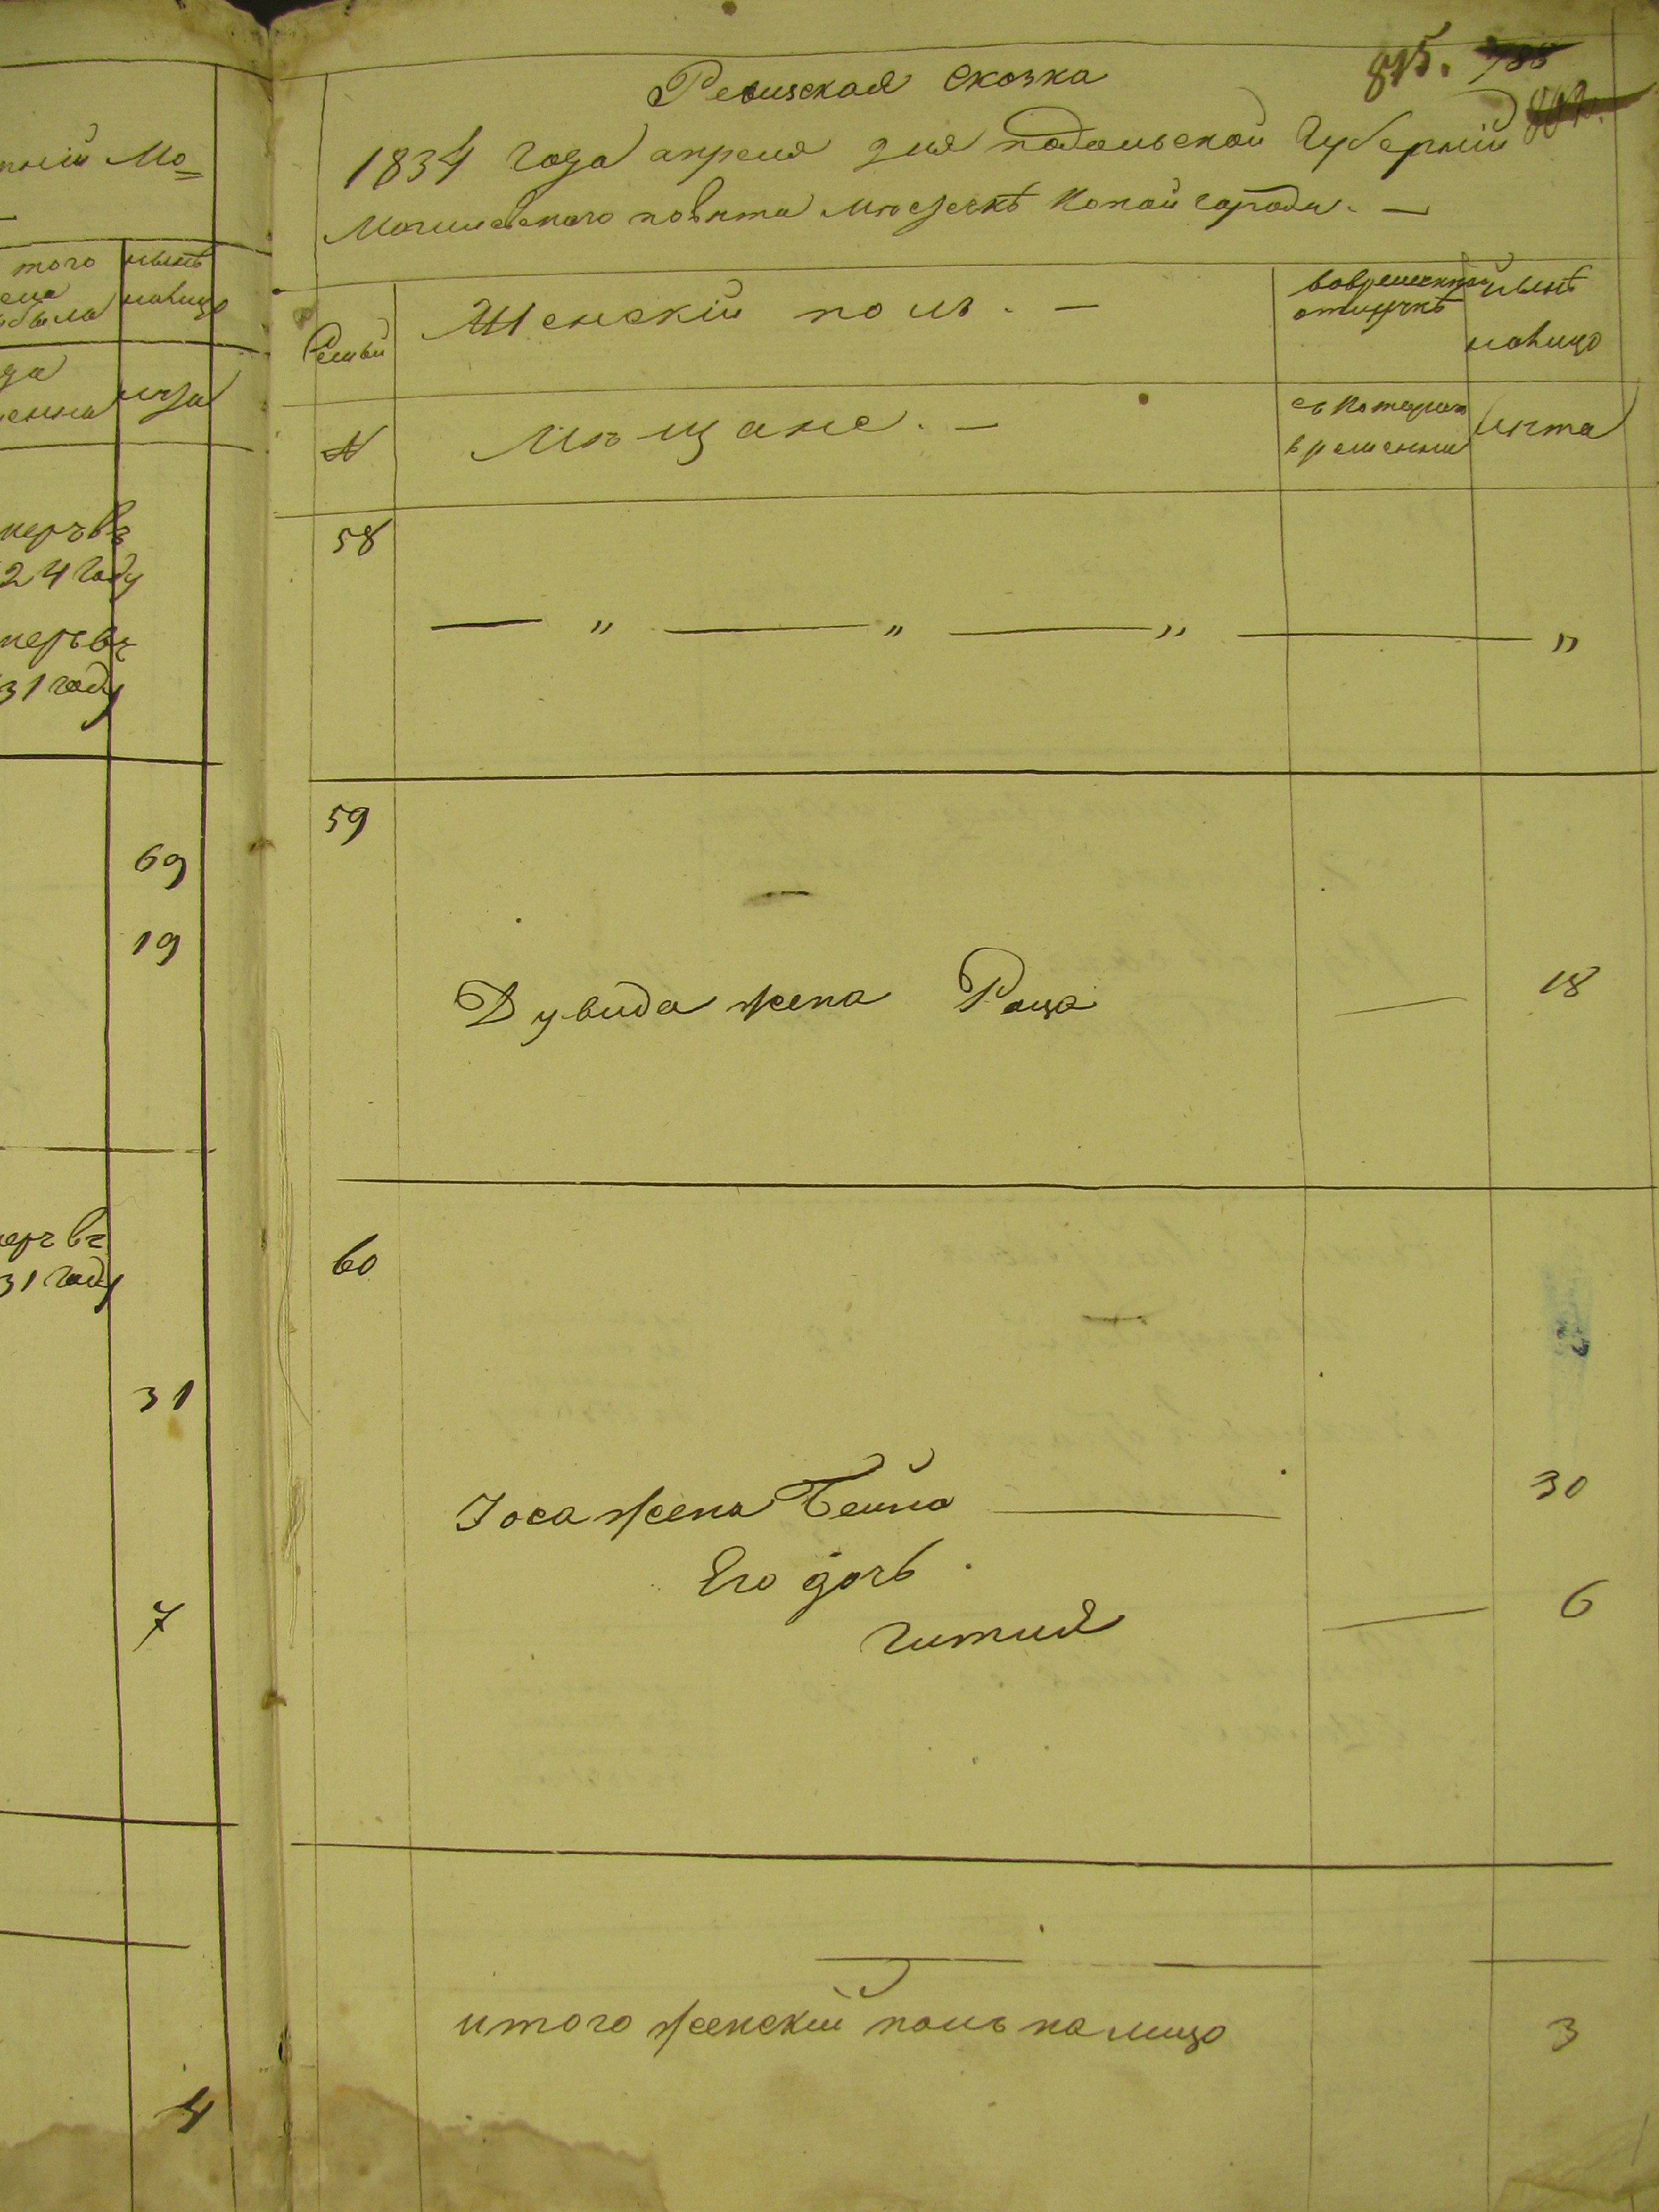 ній Мо=
того нынѣ
была налицо
лѣта
меръ въ
24 году
меръ въ
31 году
69
19
меръ въ
31 году
31
7
4
815. 785
802.
Ревизская Сказка
1834 года апреля дня подольской Губерніи
Могилевского повѣта мѣстечкѣ Копай города. —
Семьи Женскій полъ. — вовременной отлучкѣ нынѣ налицо
№ Мѣщане. — съ Котораго времени лѣта
58
— „ — „ — „ — „
59
Дувида жена Раца — 18
60
Іоса жена Бейла — 30
Его дочь
Гитля — 6
итого женскій полъ налицо 3